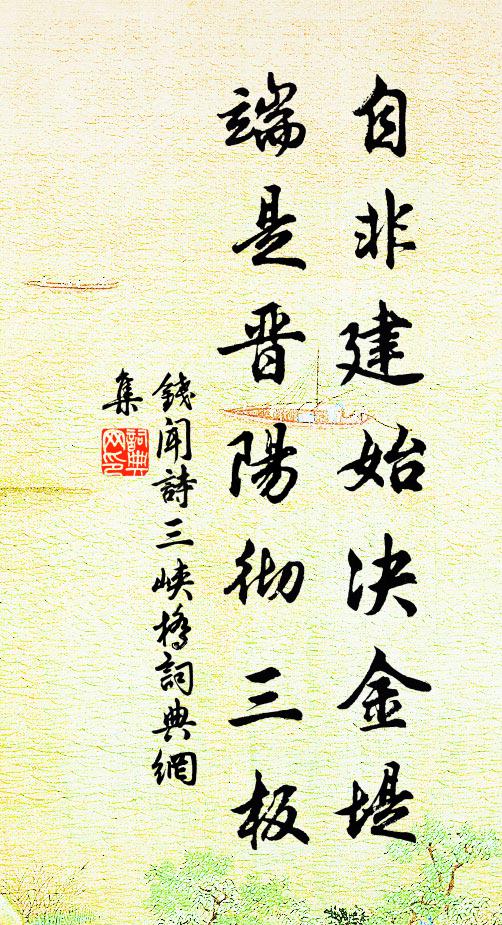 自非建始决金堤
端是晋陽彻三板
錢聞詩三峽橋詞典網
集
詞典
网印